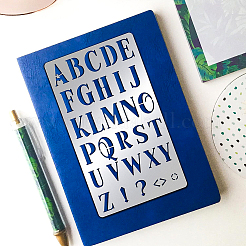 ABCDE
FGHIJ
KLMNO
PQRST
UVWXY
Z!?<>